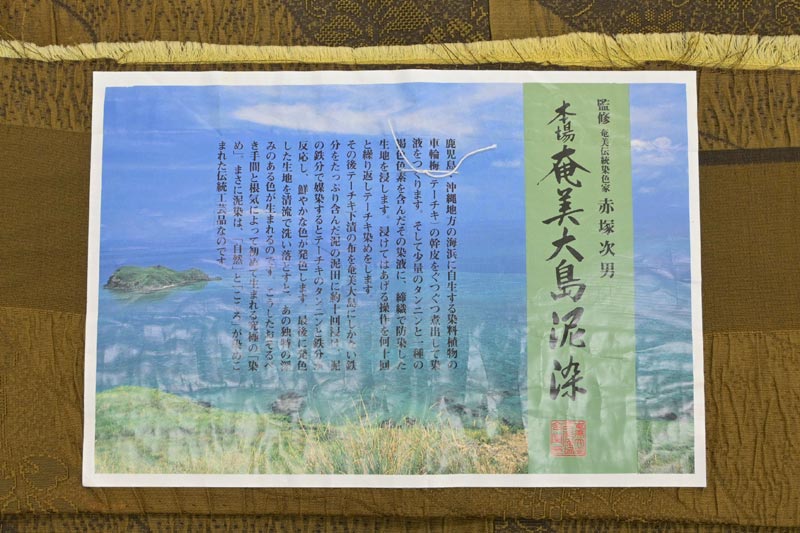 監修 奄美伝統染色家 赤塚次男
本場 奄美大島泥染
鹿児島、沖縄地方の海浜に自生する染料植物の
車輪梅(テーチキ)の幹皮をぐつぐつ煮出して染
液をつくります。そして少量のタンニンと一種の
褐色色素を含んだその染液に、締織で防染した
生地を浸します。浸けてはあげる操作を何十回
と繰り返しテーチキ染めをします。
その後テーチキ下漬の布を奄美大島にしかない鉄
分をたっぷり含んだ泥の泥田に約十回浸け、泥
の鉄分で媒染するとテーチキのタンニンと鉄分が
反応し、鮮やかな色が発色します。最後に発色
した生地を清流で洗い落とすと、あの独特の深
みのある色が生まれるのです。こうした
き手間と根気によって初めて生まれる究極の「染
め」。まさに泥染は、「自然」と「こころ」が染めこ
まれた伝統工芸品なのです。